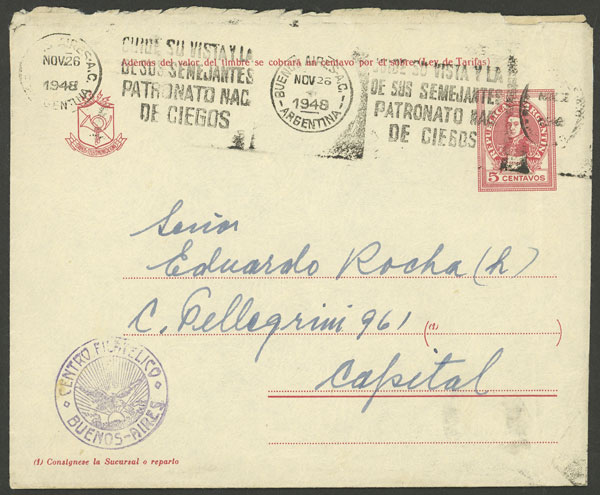 BUENOS AIRES
NOV 26
1948
CUIDE SU VISTA Y LA
DE SUS SEMEJANTES
PATRONATO NAC.
DE CIEGOS
BUENOS AIRES-A.C.
NOV 26
1948
-ARGENTINA-
CUIDE SU VISTA Y LA
DE SUS SEMEJANTES
PATRONATO NAC
DE CIEGOS
Además del valor del timbre se cobrará un centavo por el sobre (Ley de Tarifas)
REPUBLICA ARGENTINA
5 CENTAVOS
Señor
Eduardo Rocha (h)
C. Pellegrini 961 (1)
Capital
CENTRO FILATELICO
BUENOS-AIRES
(1) Consígnese la Sucursal o reparto